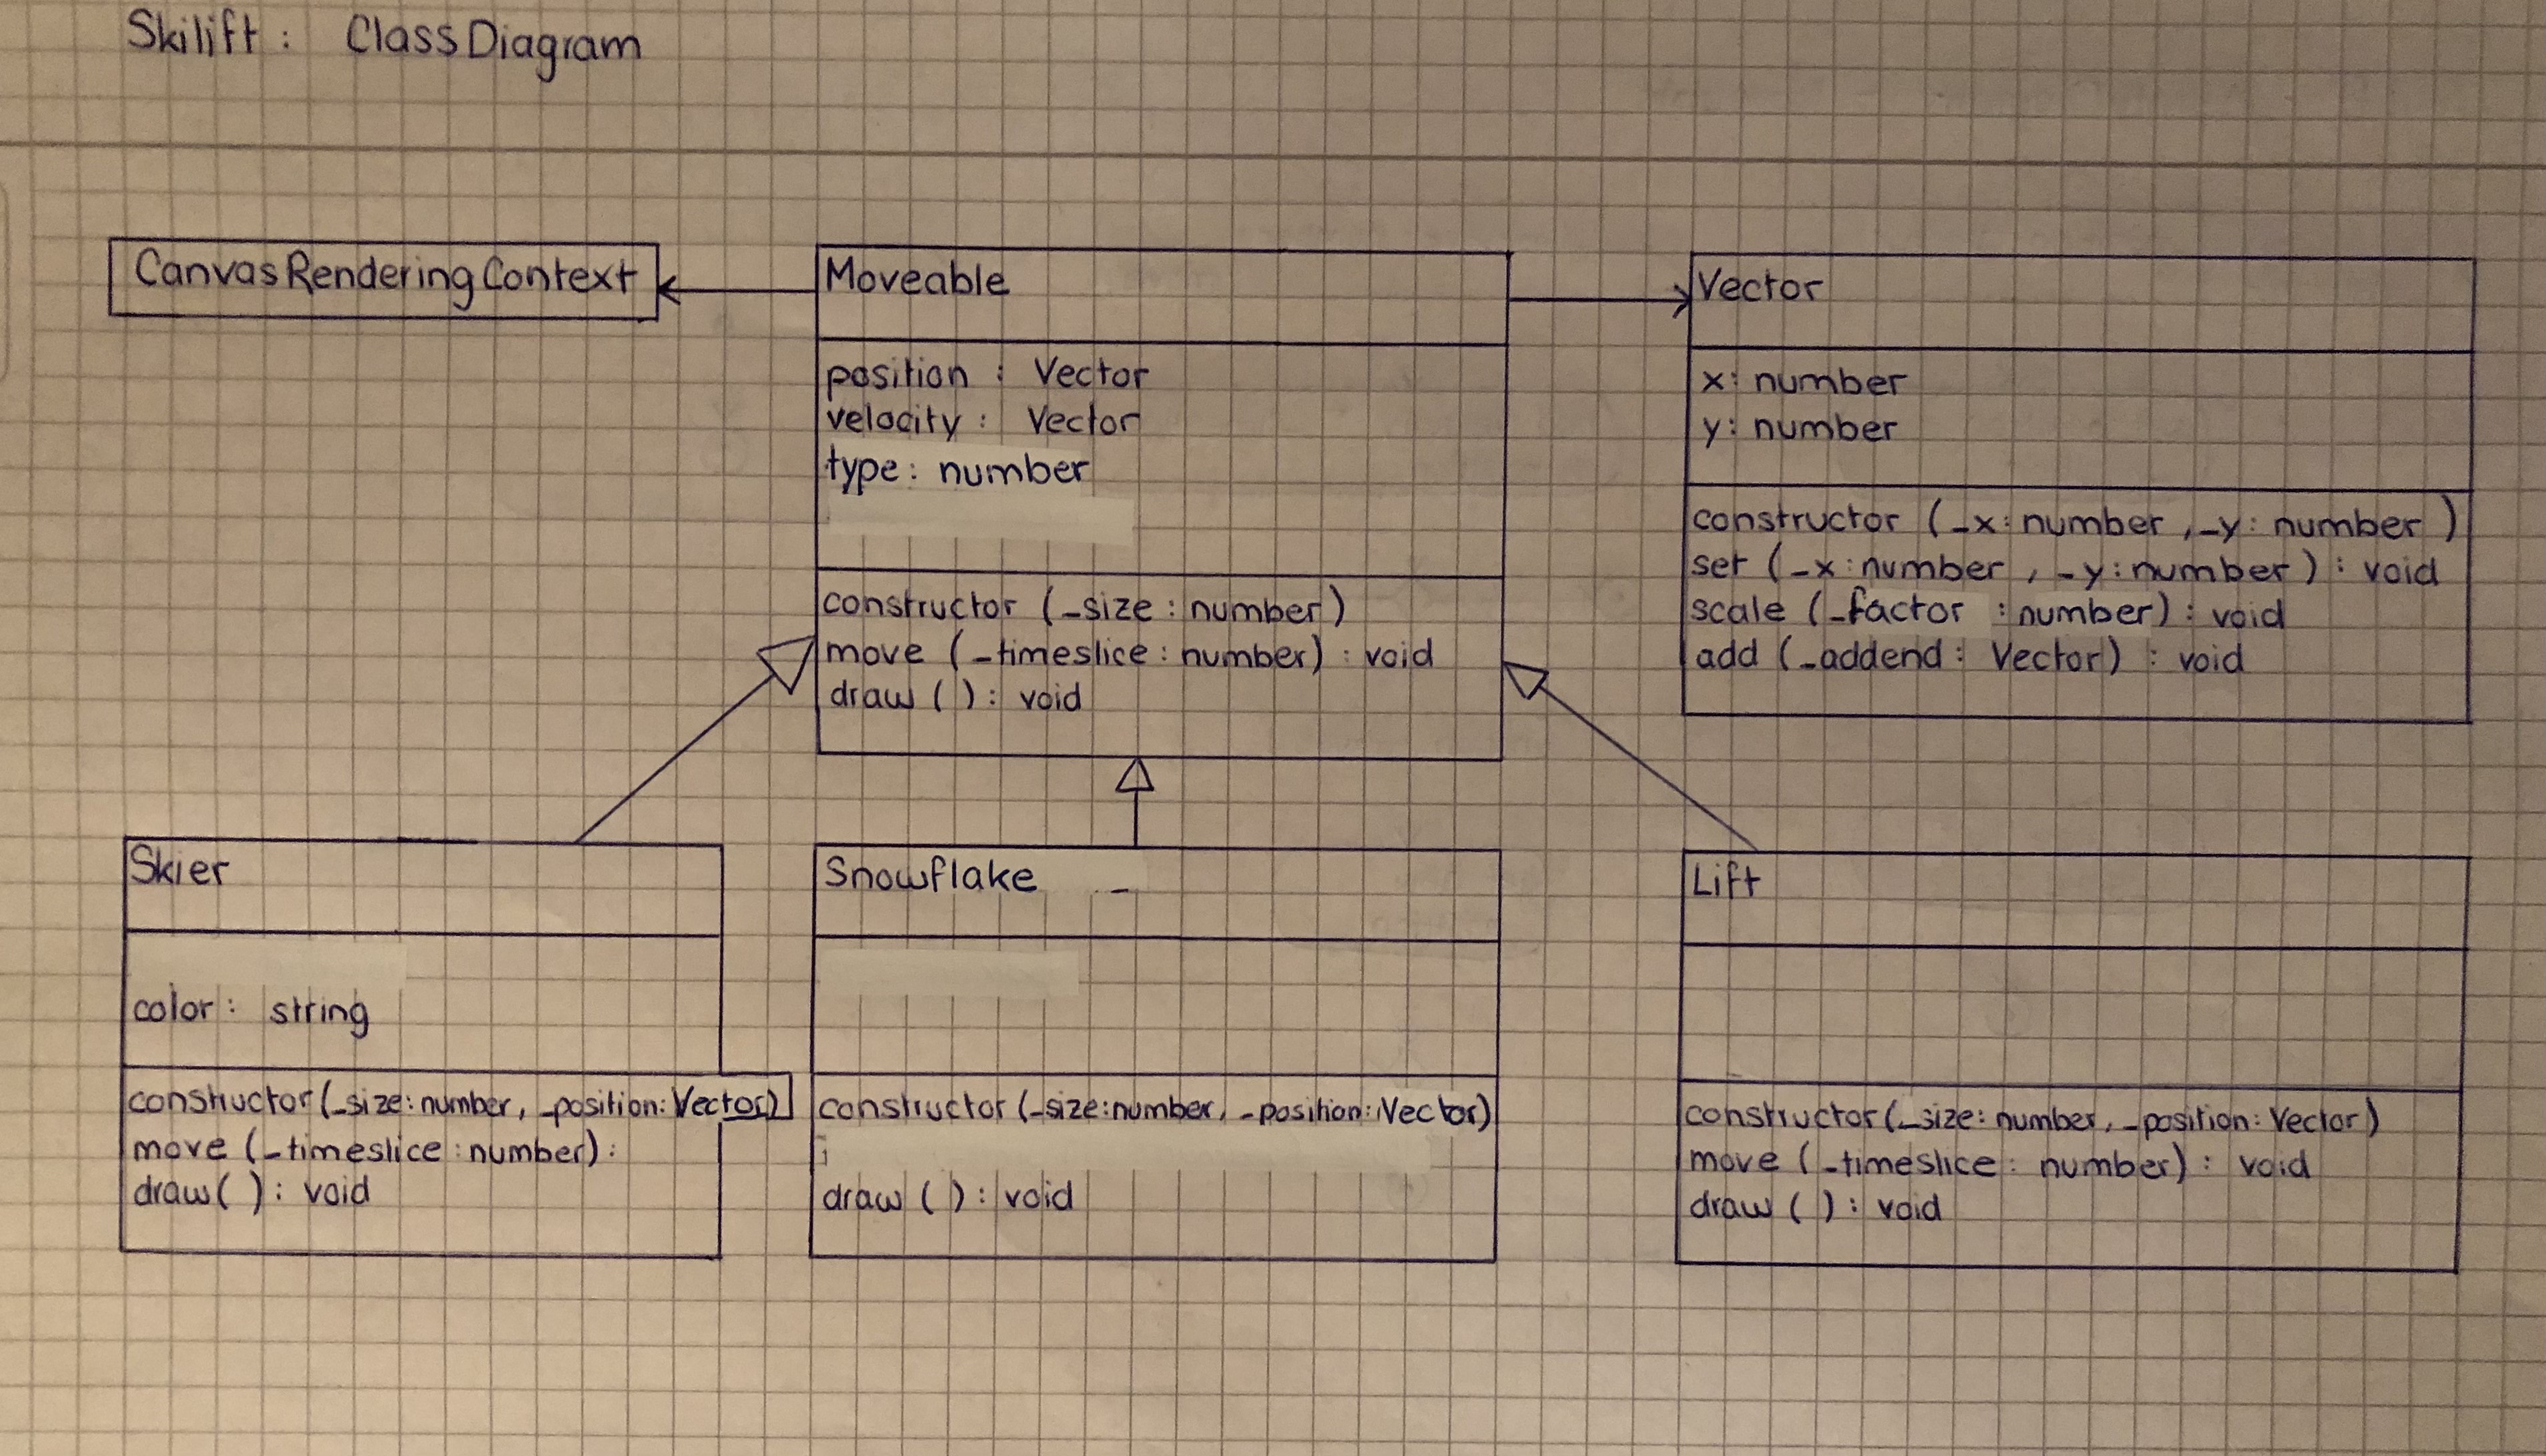 Skilift: ClassDiagram
CanvasRenderingContext
Moveable
position : Vector
velocity : Vector
type: number
constructor (_size : number)
move (_timeslice : number) : void
draw ( ) : void
Vector
x: number
y: number
constructor (_x: number , _y: number )
set (_x: number , _y: number ) : void
scale (_factor : number) : void
add (_addend : Vector) : void
Skier
color : string
constructor (_size: number, _position: Vector)
move (_timeslice : number) :
draw( ) : void
Snowflake
constructor (_size: number, _position: Vector)
draw ( ) : void
Lift
constructor (_size: number, _position: Vector)
move (_timeslice : number) : void
draw ( ) : void